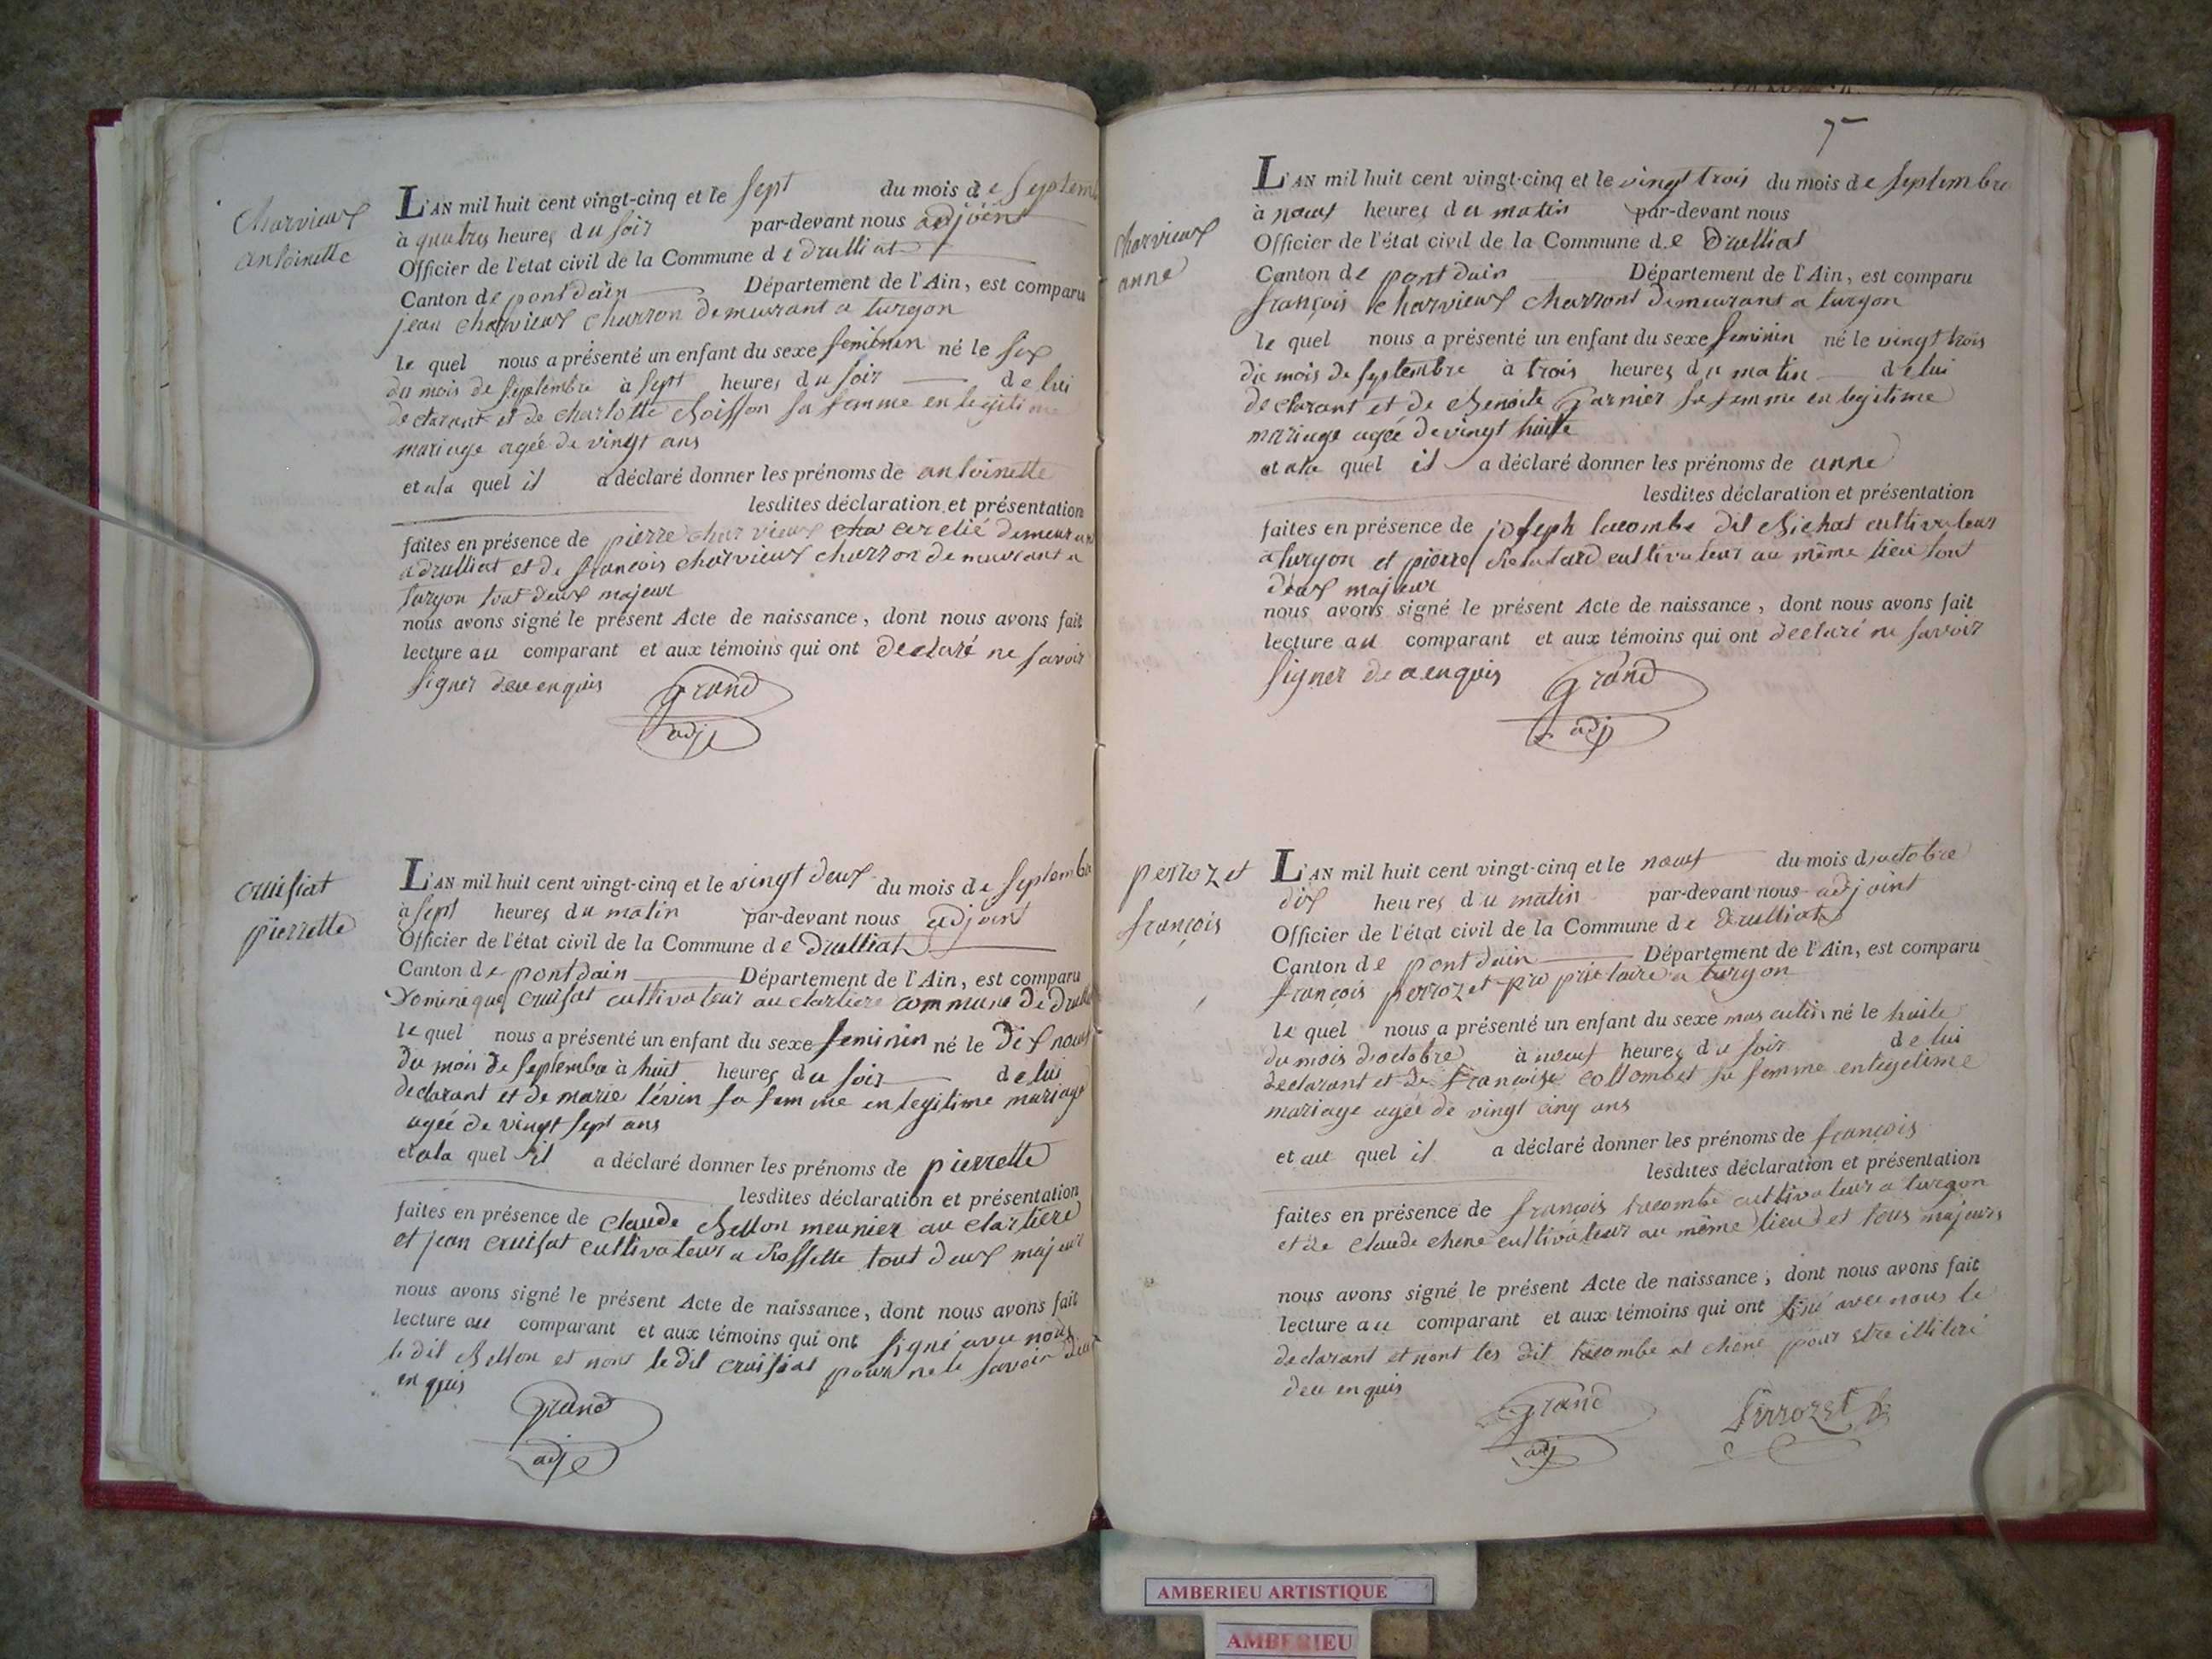 Charvieux
antoinette
L'AN mil huit cent vingt-cinq et le sept du mois de Septemb
à quatres heures du soir par-devant nous adjoint
Officier de l'état civil de la Commune de Druilliat
Canton de pont dain Département de l'Ain, est comparu
jean charvieux charron demeurant a turgon
le quel nous a présenté un enfant du sexe feminin né le six
du mois de septembre à sept heures du soir de lui
declarant et de charlotte femme en legitime
mariage agée de vingt ans
et a la quel il a déclaré donner les prénoms de antoinette
lesdites déclaration et présentation
faites en présence de pierre charvieux demeurant
a druilliat et de françois charvieux charron demeurant a
turgon tout deux majeur
nous avons signé le présent Acte de naissance, dont nous avons fait
lecture au comparant et aux témoins qui ont declaré ne savoir
signer de ce enquis Grand
adj
cruisiat
pierrette
L'AN mil huit cent vingt-cinq et le vingt deux du mois de septembre
à sept heures du matin par-devant nous adjoint
Officier de l'état civil de la Commune de Druilliat
Canton de pont dain Département de l'Ain, est comparu
Dominique cruisat cultivateur au clartiere commune de drull
le quel nous a présenté un enfant du sexe feminin né le dix neuf
du mois de septembre à huit heures du soir de lui
declarant et de marie tévin sa femme en legitime mariage
agée de vingt sept ans
et a la quel il a déclaré donner les prénoms de pierrette
lesdites déclaration et présentation
faites en présence de claude Bellon meunier au clartiere
et jean cruisat cultivateur a Rossette tout deux majeur
nous avons signé le présent Acte de naissance, dont nous avons fait
lecture au comparant et aux témoins qui ont signé avec nous
le dit Bellon et non le dit cruisiat pour ne le savoir
en quis
Grand
adj
7
charvieux
anne
L'AN mil huit cent vingt-cinq et le vingt trois du mois de septembre
à neuf heures du matin par-devant nous
Officier de l'état civil de la Commune de Druilliat
Canton de pont dain Département de l'Ain, est comparu
françois charvieux charront demeurant a turgon
le quel nous a présenté un enfant du sexe feminin né le vingt trois
du mois de septembre à trois heures du matin de lui
declarant et de Benoite Garnier sa femme en legitime
mariage agée de vingt huite
et a la quel il a déclaré donner les prénoms de anne
lesdites déclaration et présentation
faites en présence de joseph lacombe dit Michat cultivateur
a turgon et pierre cultivateur au même lieu tout
deux majeur
nous avons signé le présent Acte de naissance, dont nous avons fait
lecture au comparant et aux témoins qui ont declaré ne savoir
signer de ce enquis Grand
adj
perrozet
françois
L'AN mil huit cent vingt-cinq et le neuf du mois doctobre
dix heures du matin par-devant nous adjoint
Officier de l'état civil de la Commune de Druilliat
Canton de pont dain Département de l'Ain, est comparu
françois perrozet propriétaire a turgon
le quel nous a présenté un enfant du sexe masculin né le huite
du mois doctobre à neuf heures du soir de lui
declarant et de françoise collombet sa femme en legitime
mariage agée de vingt cinq ans
et au quel il a déclaré donner les prénoms de françois
lesdites déclaration et présentation
faites en présence de françois lacombe cultivateur a turgon
et de claude chene cultivateur au même lieu et tous majeurs
nous avons signé le présent Acte de naissance, dont nous avons fait
lecture au comparant et aux témoins qui ont signé avec nous le
declarant et nont les dit lacombe et chene pour etre illiteré
de ce enquis
Grand
adj
Perrozet
AMBERIEU ARTISTIQUE
AMBERIEU